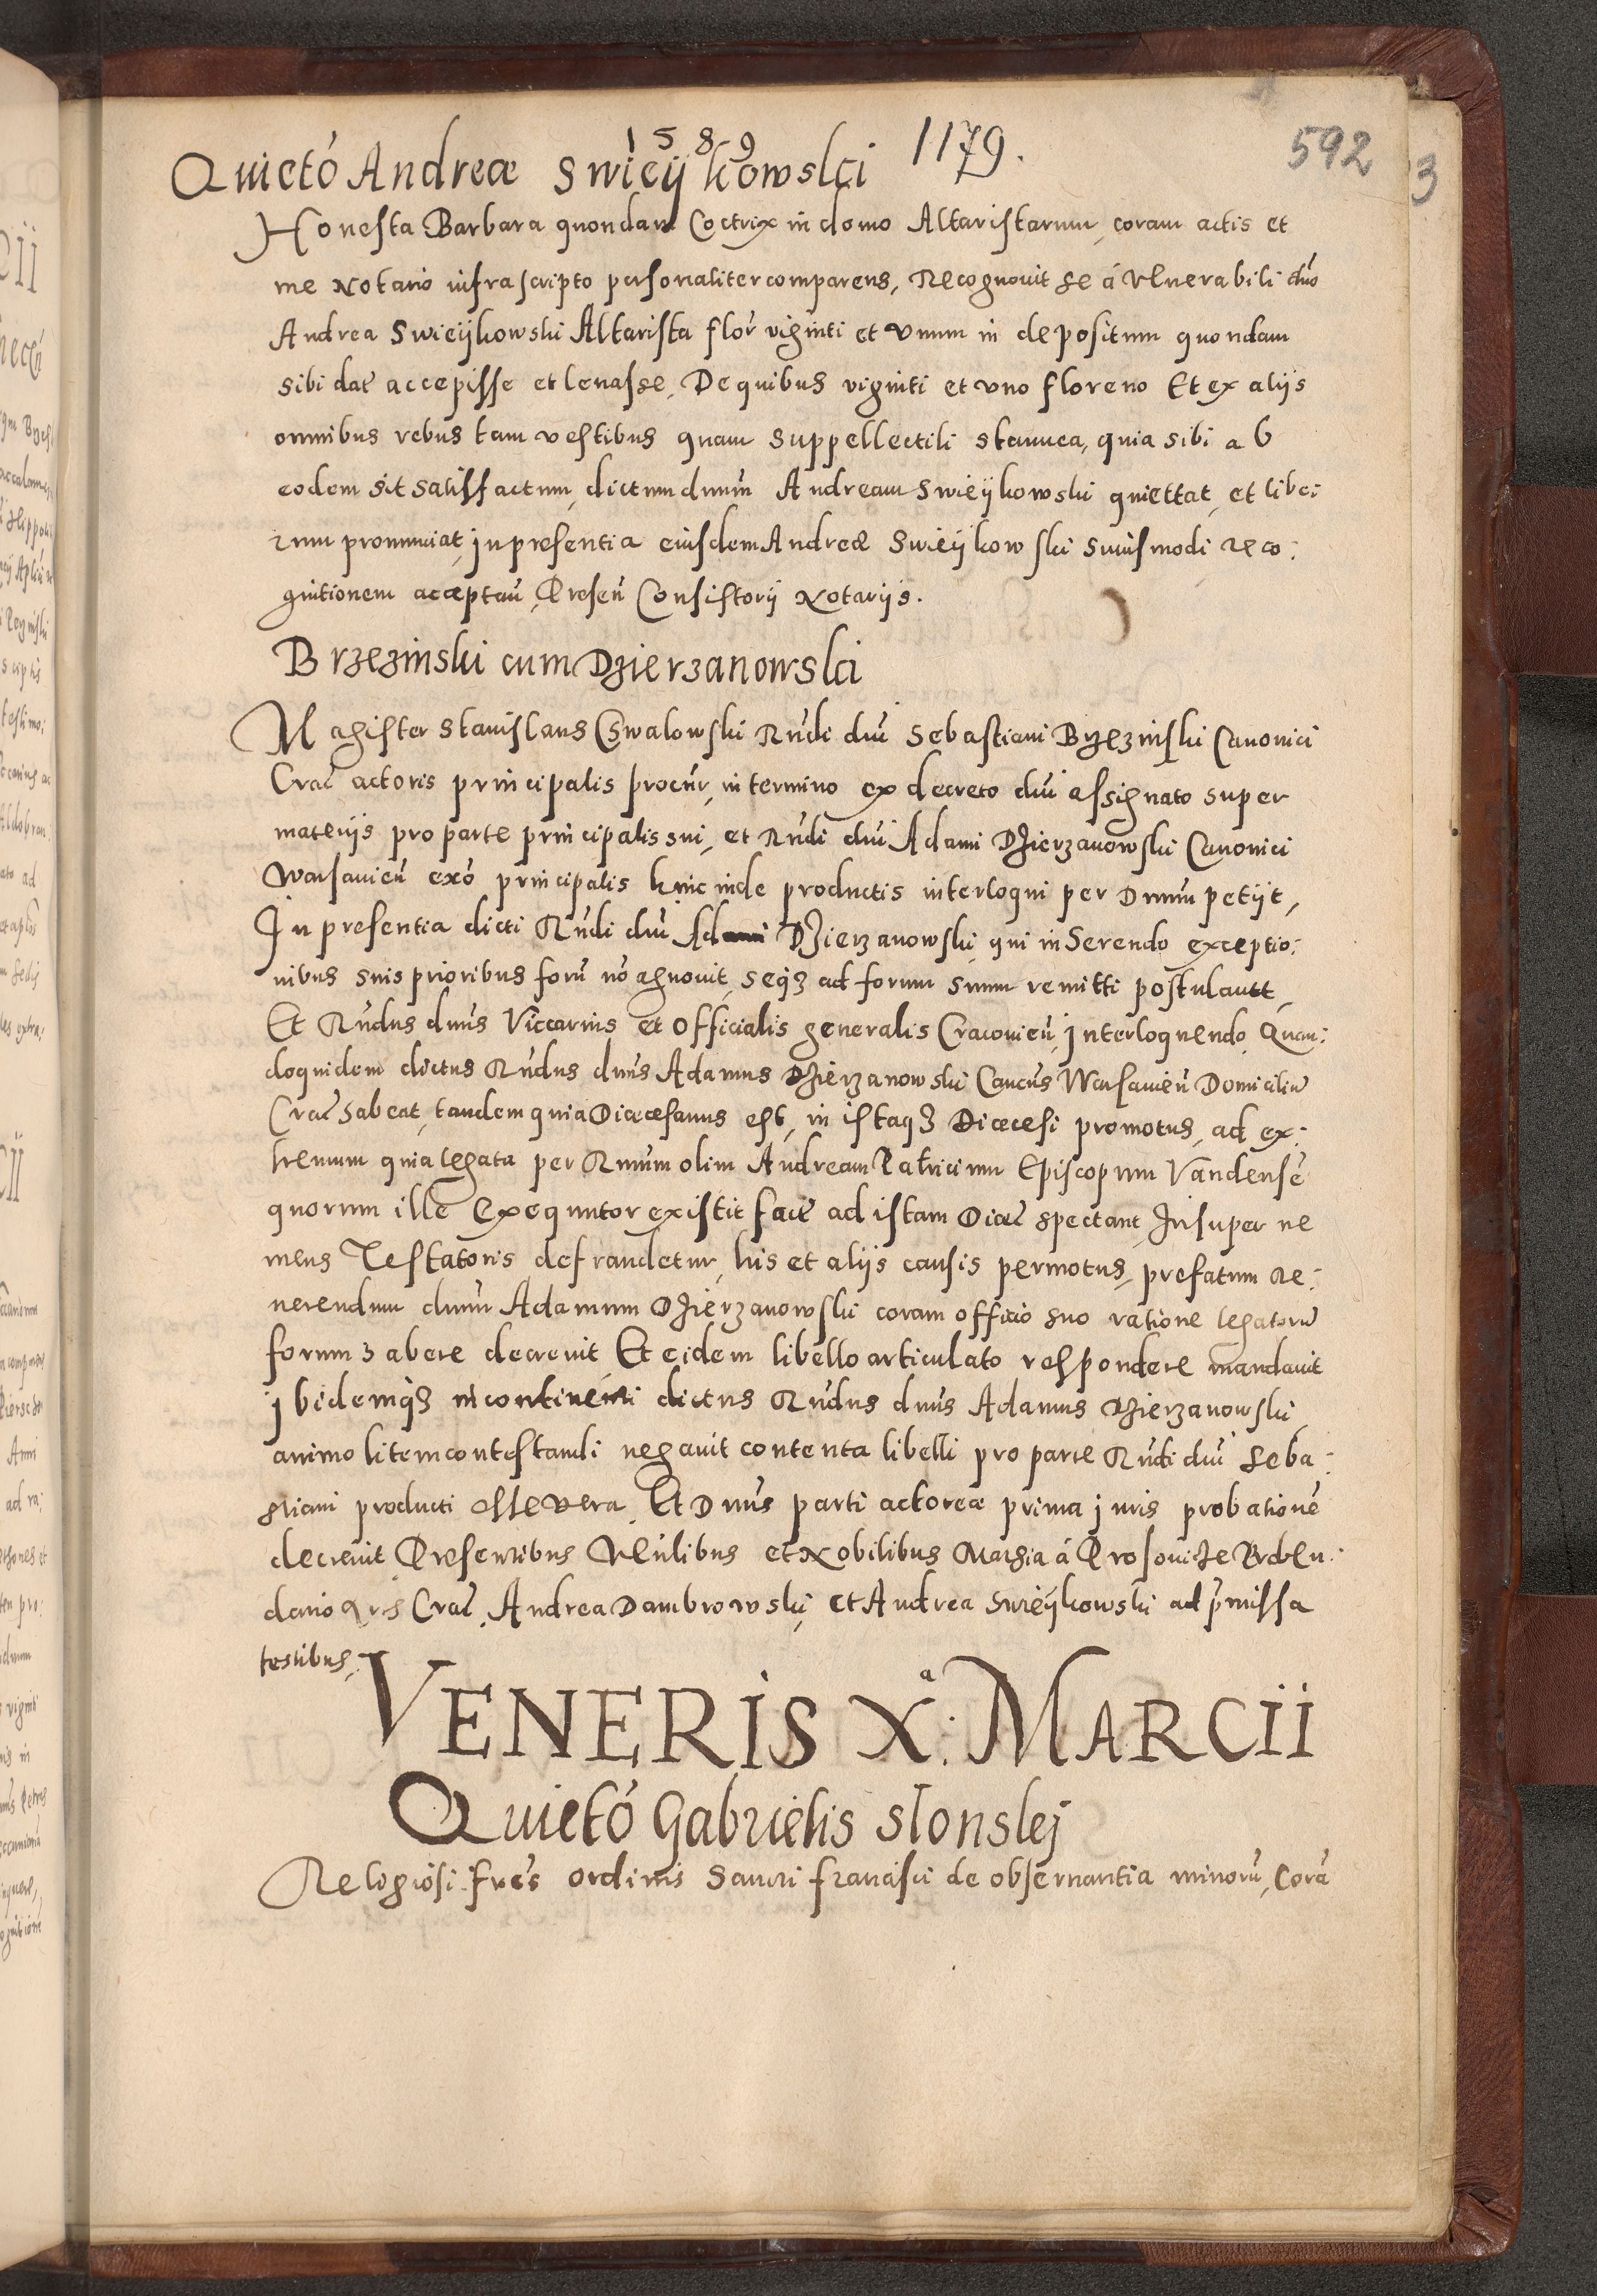 1589 1179. 592
3
Quietõ Andreæ Swieykowski
Honesta Barbara quondam Coctrix in domo Altaristarum, coram actis et
me Notario infrascripto personaliter comparens, Recognouit se á Venerabili dno
Andrea Swieÿkowski Altarista flor viginti et vnum in depositum quondam
sibi dat accepisse et leuasse, De quibus viginti et vno floreno Et ex alijs
omnibus rebus tam vestibus quam suppellectili stannea, quia sibi ab
eodem sit satisfactum, dictum dnum Andream Swieÿkowski quiettat, et libe:
rum pronunciat, in presentia eiusdem Andreæ Swieÿkowski huiusmodi reco:
gnitionem acceptañ, Preseñ Consistorij Notarijs.
Brzezinski cum Dzierzanowski
Magister Stanislaus Chwalowski Rñdi dñi Sebastiani Brzezinski Canonici
Crac actoris principalis procur, in termino ex decreto dñi assignato super
materijs pro parte principalis sui, et Rñdi dñi Adami Dzierzanowski Canonici
Warsauieñ exó principalis hinc inde productis interloqui per Dnum petijt,
In presentia dicti Rñdi dñi Adami Dzierzanowski, qui inserendo exceptio:
nibus suis prioribus forũ nõ agnouit, seq3 ad forum suum remitti postulauit,
Et Rñdus dnus Viccarius et Officialis generalis Cracouieñ, interloquendo, Quan:
doquidem dictus Rñdus dnus Adamus Dzierzanowski Cancus Warsauieñ Domiciliũ
Crac habeat, tandem quia Diœcesanus est, in istaq3 Diœcesi promotus, ad ex:
tremum quia legata per Rmum olim Andream Patricium Episcopum Vandensẽ
quorum ille Exequutor existit fact ad istam Dioec spectant, Insuper ne
mens Testatoris defraudetur, his et alijs causis permotus, prefatum Re:
uerendum dnum Adamum Dzierzanowski coram officio suo ratione legatorũ
forum habere decreuit Et eidem libello articulato respondere mandauit
ibidemq3 incontinenti dictus Rñdus dnus Adamus Dzierzanowski
animo litem contestandi negauit contenta libelli pro parte Rñdi dñi Seba:
stiani producti esse vera, Et Dnus parti actoreæ prima juris probationẽ
decreuit, Presentibus Veñlibus et Nobilibus Mathia á Prosouicze Præben:
dario Crac, Andrea Dambrowski, et Andrea Swieÿkowski ad pmissa
testibus,
VENERIS Xª. MARCII
Quietõ Gabrielis Slonskj
Religiosi fres ordinis Sancti francisci de obseruantia minorũ, Corã